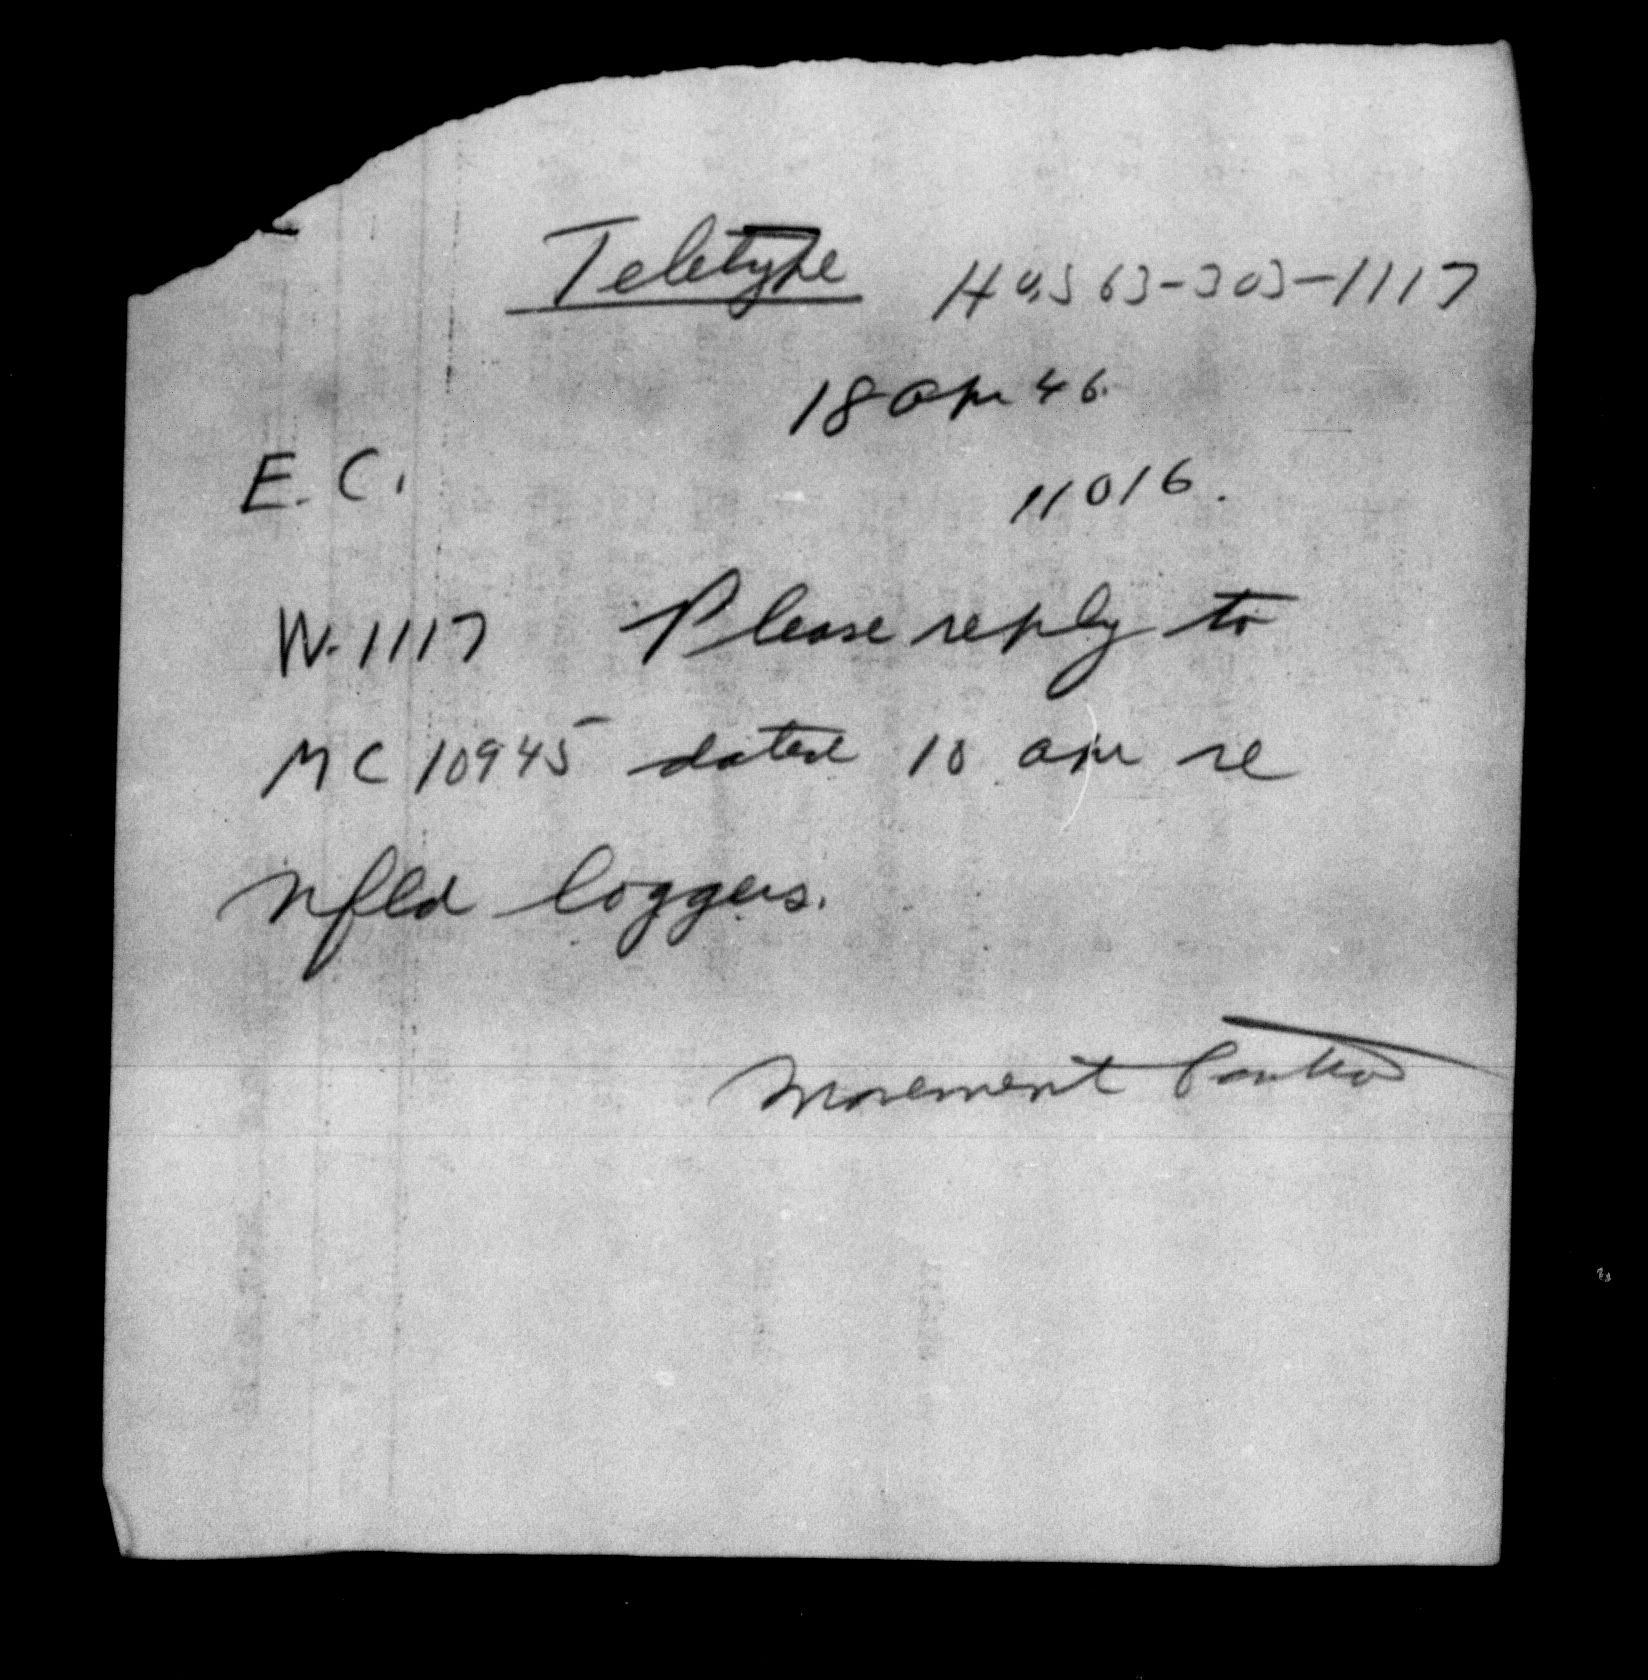 Teletype HQS 63-303-1117
18 Apr 46.
E. C. 11016.
W. 1117 Please reply to
MC 10945 dated 10 apr re
nfld loggers.
Movement Control